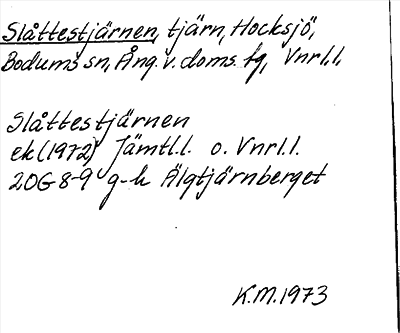 Slåttestjärnen, tjärn, Hocksjö,
Bodums sn, Ång. v. doms. fg, Vnrl.l,
Slåttestjärnen
ek (1972) Jämtl.l. o. Vnrl.l.
20G 8-9 g-h Älgtjärnberget
K.M.1973